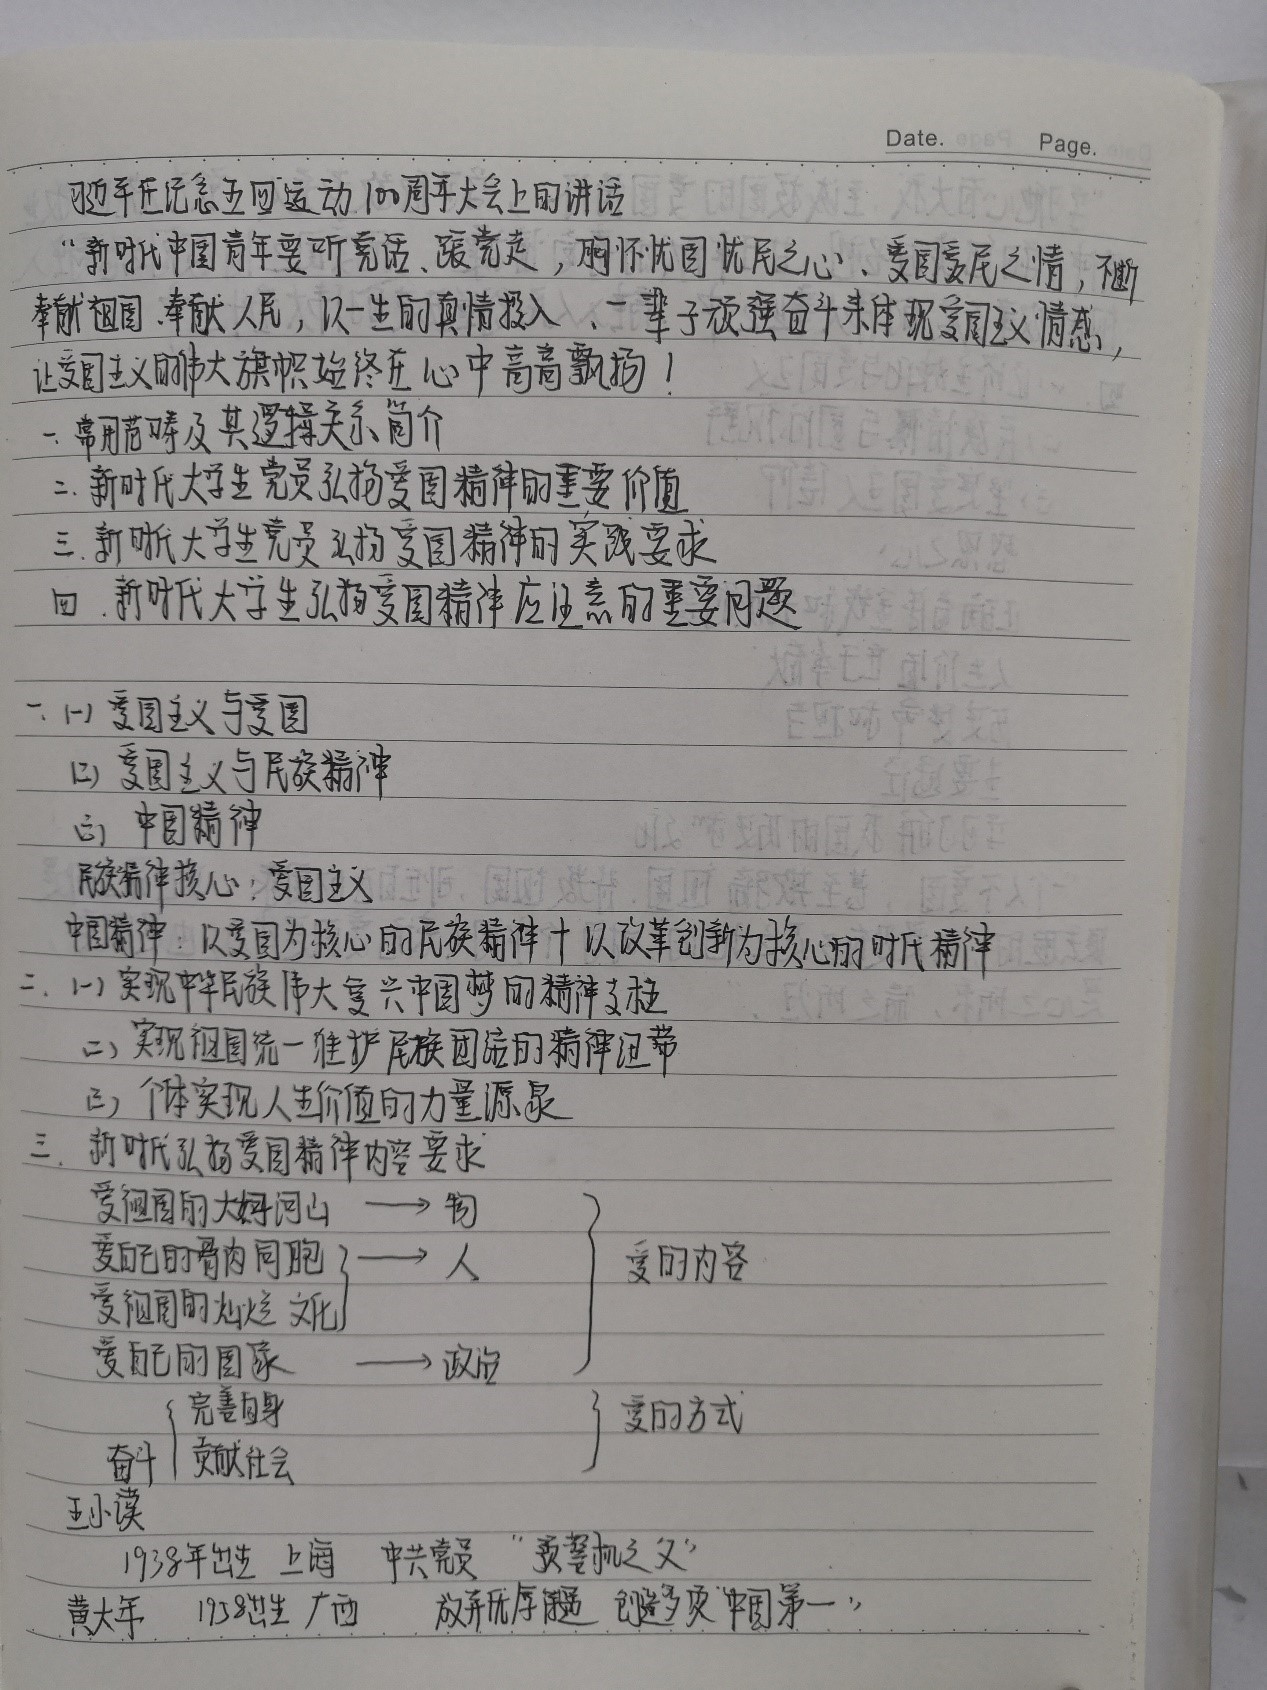 Date. Page.
习近平在纪念五四运动100周年大会上的讲话
“新时代中国青年要听党话、跟党走，胸怀忧国忧民之心、爱国爱民之情，不断
奉献祖国、奉献人民，以一生的真情投入、一辈子顽强奋斗来体现爱国主义情感，
让爱国主义的伟大旗帜始终在心中高高飘扬！
一、常用范畴及其逻辑关系简介
二、新时代大学生党员弘扬爱国精神的重要价值
三、新时代大学生党员弘扬爱国精神的实践要求
四、新时代大学生弘扬爱国精神应注意的重要问题
一、(一) 爱国主义与爱国
(二) 爱国主义与民族精神
(三) 中国精神
民族精神核心：爱国主义
中国精神：以爱国为核心的民族精神＋以改革创新为核心的时代精神
二、(一) 实现中华民族伟大复兴中国梦的精神支柱
(二) 实现祖国统一维护民族团结的精神纽带
(三) 个体实现人生价值的力量源泉
三、新时代弘扬爱国精神内容要求
爱祖国的大好河山 → 物
爱自己的骨肉同胞 → 人 爱的内容
爱祖国的灿烂文化
爱自己的国家 → 政治
完善自身 爱的方式
奋斗 贡献社会
王小谟
1938年出生 上海 中共党员 “预警机之父”
黄大年 1958出生 广西 放弃优厚待遇 创造多项“中国第一”